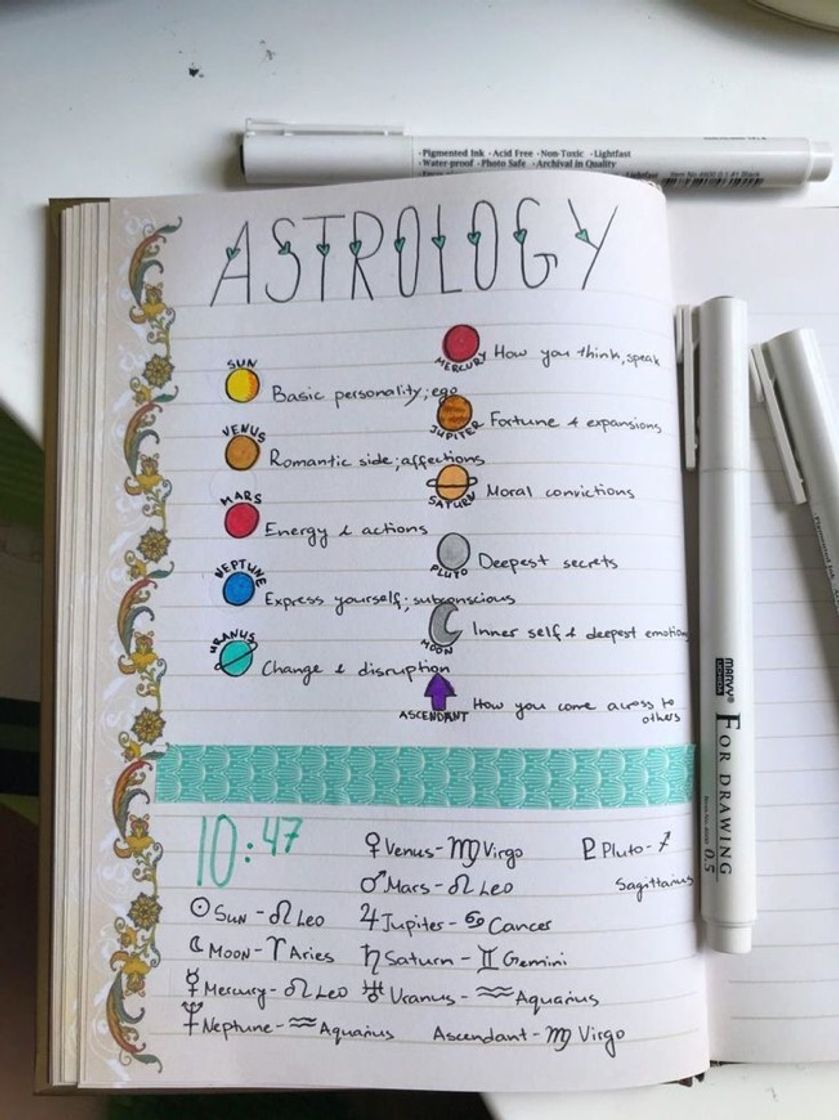 ·Pigmented Ink ·Acid Free ·Non-Toxic ·Lightfast
·Water-proof ·Photo Safe ·Archival in Quality
Item No 4600 0.1 #1 Black
ASTROLOGY
SUN
Basic personality; ego
VENUS
Romantic side; affections
MARS
Energy & actions
NEPTUNE
Express yourself; subconscious
URANUS
Change & disruption
MERCURY
How you think, speak
JUPITER
Fortune & expansions
SATURN
Moral convictions
PLUTO
Deepest secrets
MOON
Inner self & deepest emotions
ASCENDANT
How you come across to
others
10:47
☉ Sun - ♌ Leo
☾ Moon - ♈ Aries
☿ Mercury - ♌ Leo
♆ Neptune - ♒ Aquarius
♀ Venus - ♍ Virgo
♂ Mars - ♌ Leo
♃ Jupiter - ♋ Cancer
♄ Saturn - ♊ Gemini
♅ Uranus - ♒ Aquarius
Ascendant - ♍ Virgo
♇ Pluto - ♐
Sagittarius
MARVY®
UCHIDA
FOR DRAWING
Item No.4600 0.5